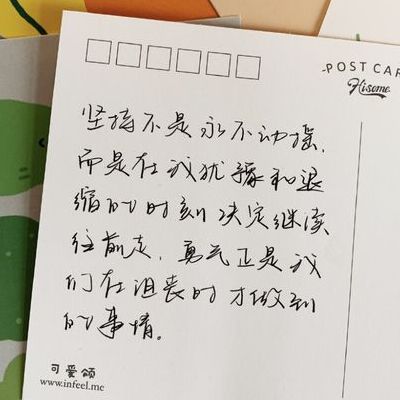 POST CAR
Hisome
坚持不是永不动摇，
而是在我犹豫和退
缩的时刻决定继续
往前走，勇气正是我
们在沮丧时才做到
的事情。
可爱颂
www.infeel.me